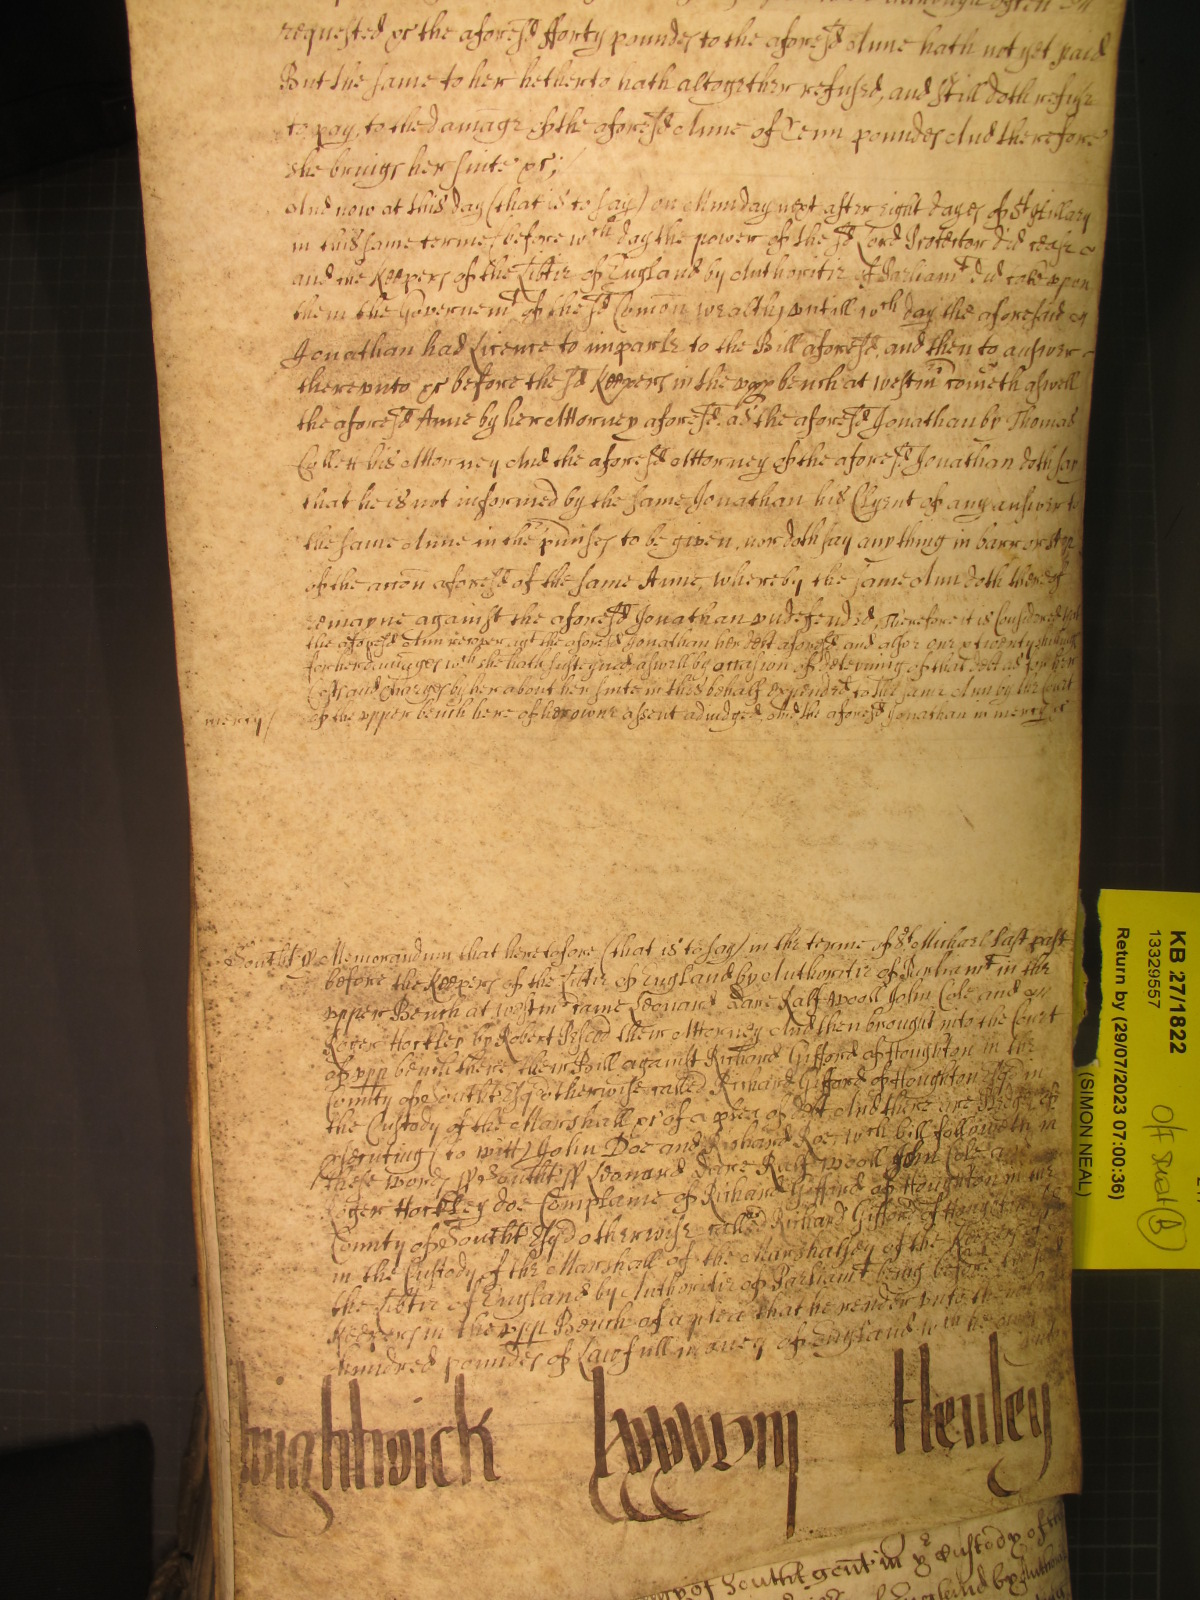 requested &c the aforesd fforty poundes to the aforesd Anne hath not yet paid
But the same to her hetherto hath altogether refused, and still doth refuse
to pay, to the damage of the aforesd Anne of Tenn poundes And therefore
she brings her suite &c;
And now at this day (that is to say) on Munday next after eight dayes of St Hillary
in this same terme before wch day the power of the sd Lord Protector did cease
and the Keepers of the Libtie of England by Authoritie of Parliamt did take upon
them the Governemt of the sd Comon wealth, untill wch day the aforesaid
Jonathan had Licence to imparle to the Bill aforesd, and then to answer
thereunto &c before the sd Keepers in the upp bench at Westmr cometh aswell
the aforesd Anne by her Attorney aforesd. as the aforesd Jonathan by Thomas
Collett his Attorney And the aforesd Attorney of the aforesd Jonathan doth say
that he is not informed by the same Jonathan his Clyent of any answer to
the same Anne in the pmises to be given, nor doth say anything in barr or
of the accon aforesd of the same Anne, whereby the same Ann doth thereof
remayne against the aforesd Jonathan undefended, Therefore it is Considered that
the aforesd Ann recover agt the aforesd Jonathan her debt aforesd and alsoe one & twenty shillings
for her damages wch she hath susteyned aswell by occasion of deteyning of that debt as for her
Costs and charges by her about her suite in this behalf expended to the same Ann by the Court
of the upper bench here of her owne assent adiudged, And the aforesd Jonathan in mercy &c
mercy
Southt ss Memorandum that heretofore (that is to say) in the terme of St Michael last past
before the Keepers of the Libtie of England by Authoritie of Parliamt in the
upper Bench at Westmr came Leonard Dare Ralf Wooll John Cole and
Roger Hockley by Robert their Attorney And then brought into the Court
of upp bench there their Bill against Richard Gifford of Houghton in the
County of Southt Esq otherwise called Richard Gifford of Houghton Esq in
the Custody of the Marshall &c of a plea of debt And there are pledges of
psecuting (to witt) John Doe and Richard Roe, wch bill followeth in
these words ss Southt ss Leonard Dare Ralf Wooll John Cole and
Roger Hockley doe Complaine of Richard Gifford of Houghton in the
County of Southt Esqr otherwise called Richard Gifford of Houghton
in the Custody of the Marshall of the Marshalsey of the Keepers of
the Libtie of England by Authoritie of Parliamt being before the said
Keepers in the upp Bench of a plea that he render unto them
hundred poundes of Lawfull money of England wch he
Henley
gent in ye Custody of the
England by Authori
KB 27/1822
13329557
Return by (29/07/2023 07:00:36)
(SIMON NEAL)